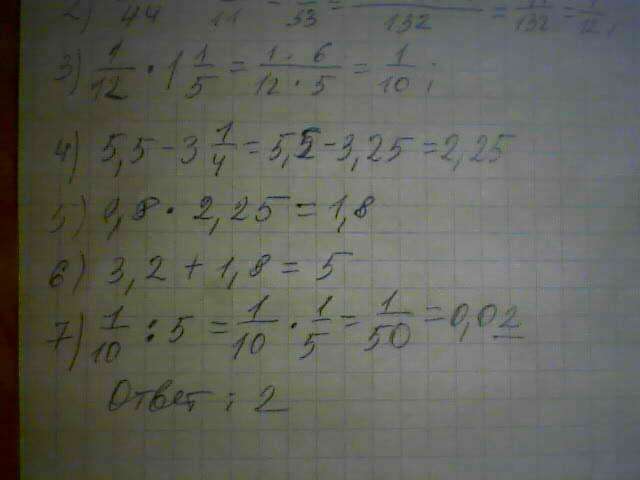 2) 44 11 33 132 = 11/132 = 1/12;
3) 1/12 · 1 1/5 = 1 · 6/12 · 5 = 1/10;
4) 5,5 - 3 1/4 = 5,5 - 3,25 = 2,25
5) 0,8 · 2,25 = 1,8
6) 3,2 + 1,8 = 5
7) 1/10 : 5 = 1/10 · 1/5 = 1/50 = 0,02
Ответ : 2